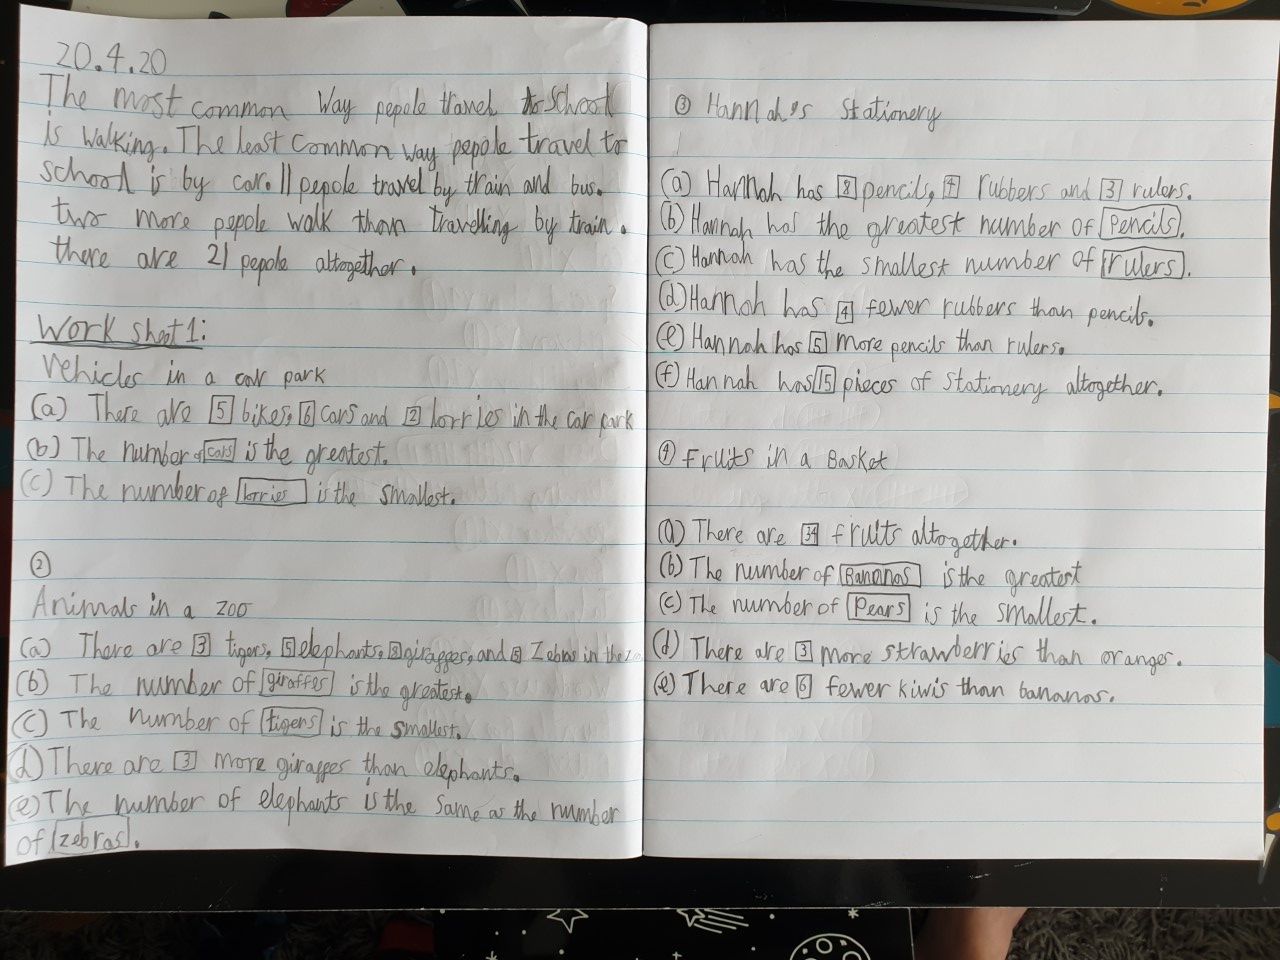 20.4.20
The most common way pepole travel to school
is walking. The least common way pepole travel to
school is by car. 11 pepole travel by train and bus.
two more pepole walk than travelling by train.
there are 21 pepole altogether.
Work sheet 1:
Vehicles in a car park
(a) There are 5 bikes, 6 cars and 2 lorries in the car park
(b) The number of cars is the greatest.
(c) The number of lorries is the smallest.
2
Animals in a zoo
(a) There are 3 tigers, 5 elephants, 8 giraffes, and 5 Zebras in the
(b) The number of giraffes is the greatest.
(c) The number of tigers is the smallest.
(d) There are 3 more giraffes than elephants.
(e) The number of elephants is the same as the number
of zebras.
3 Hannah's Stationery
(a) Hannah has 8 pencils, 4 rubbers and 3 rulers.
(b) Hannah has the greatest number of Pencils.
(c) Hannah has the smallest number of rulers.
(d) Hannah has 4 fewer rubbers than pencils.
(e) Hannah has 5 more pencils than rulers.
(f) Hannah has 15 pieces of stationery altogether.
4 Fruits in a Basket
(a) There are 34 fruits altogether.
(b) The number of Bananas is the greatest
(c) The number of Pears is the smallest.
(d) There are 3 more strawberries than oranges.
(e) There are 6 fewer kiwis than bananas.